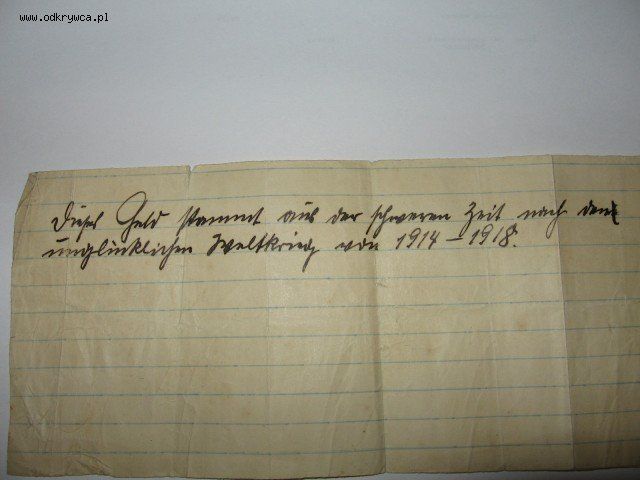 www.odkrywca.pl
Dieses Geld stammt aus der schweren Zeit nach dem
unglücklichen Weltkrieg von 1914 – 1918.